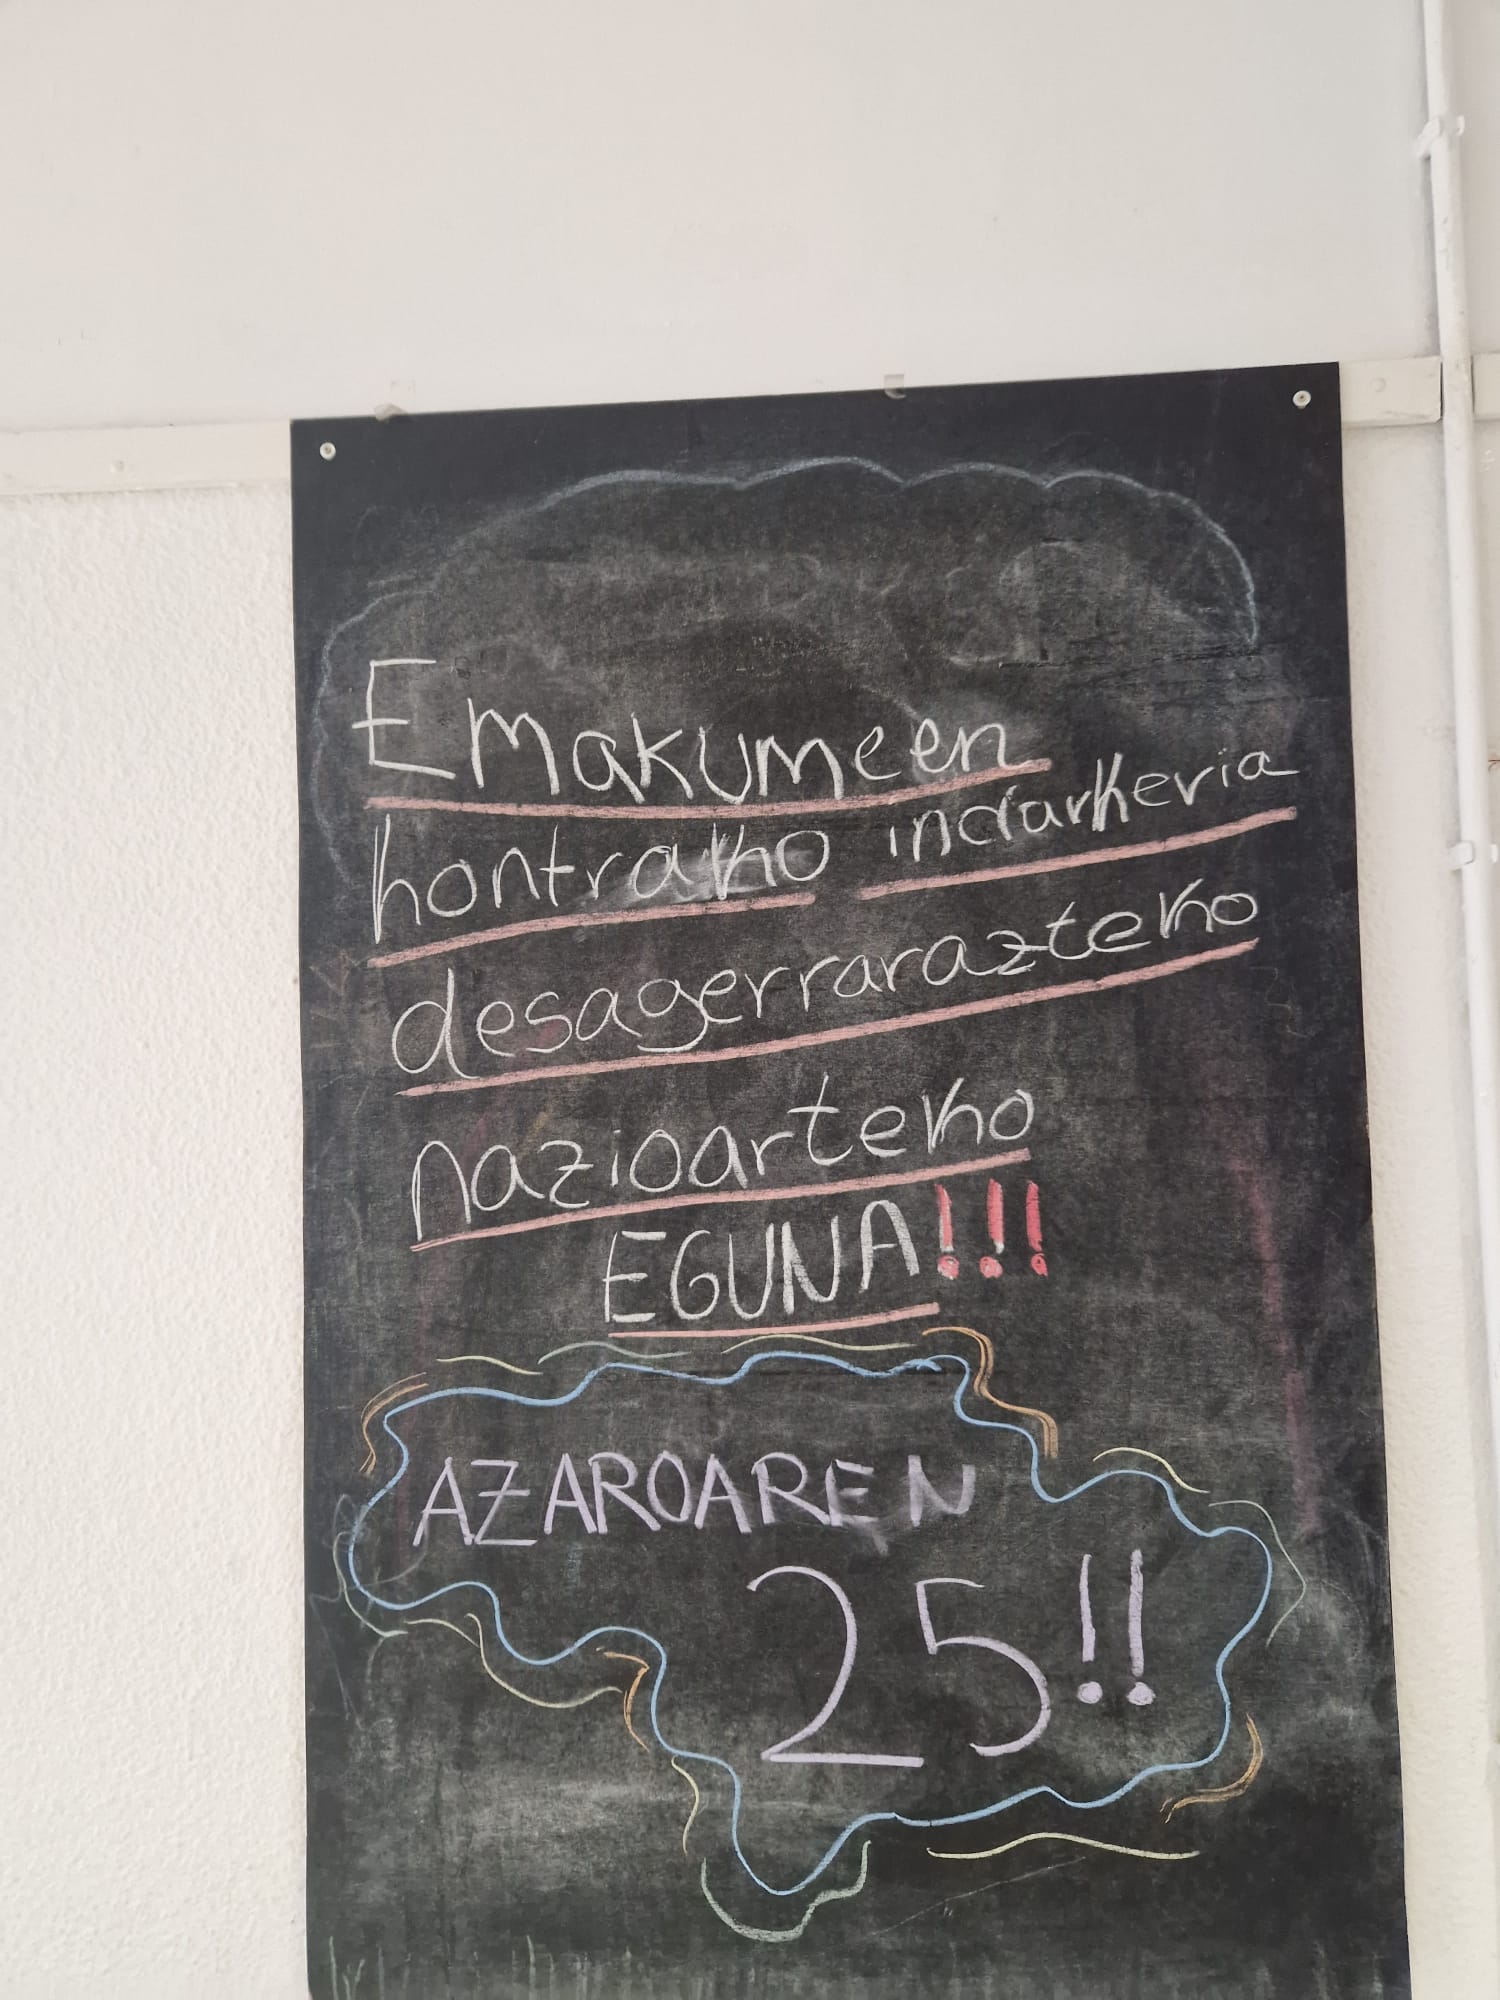 Emakumeen
kontrako indarkeria
desagerrarazteko
nazioarteko
EGUNA!!!
AZAROAREN
25!!